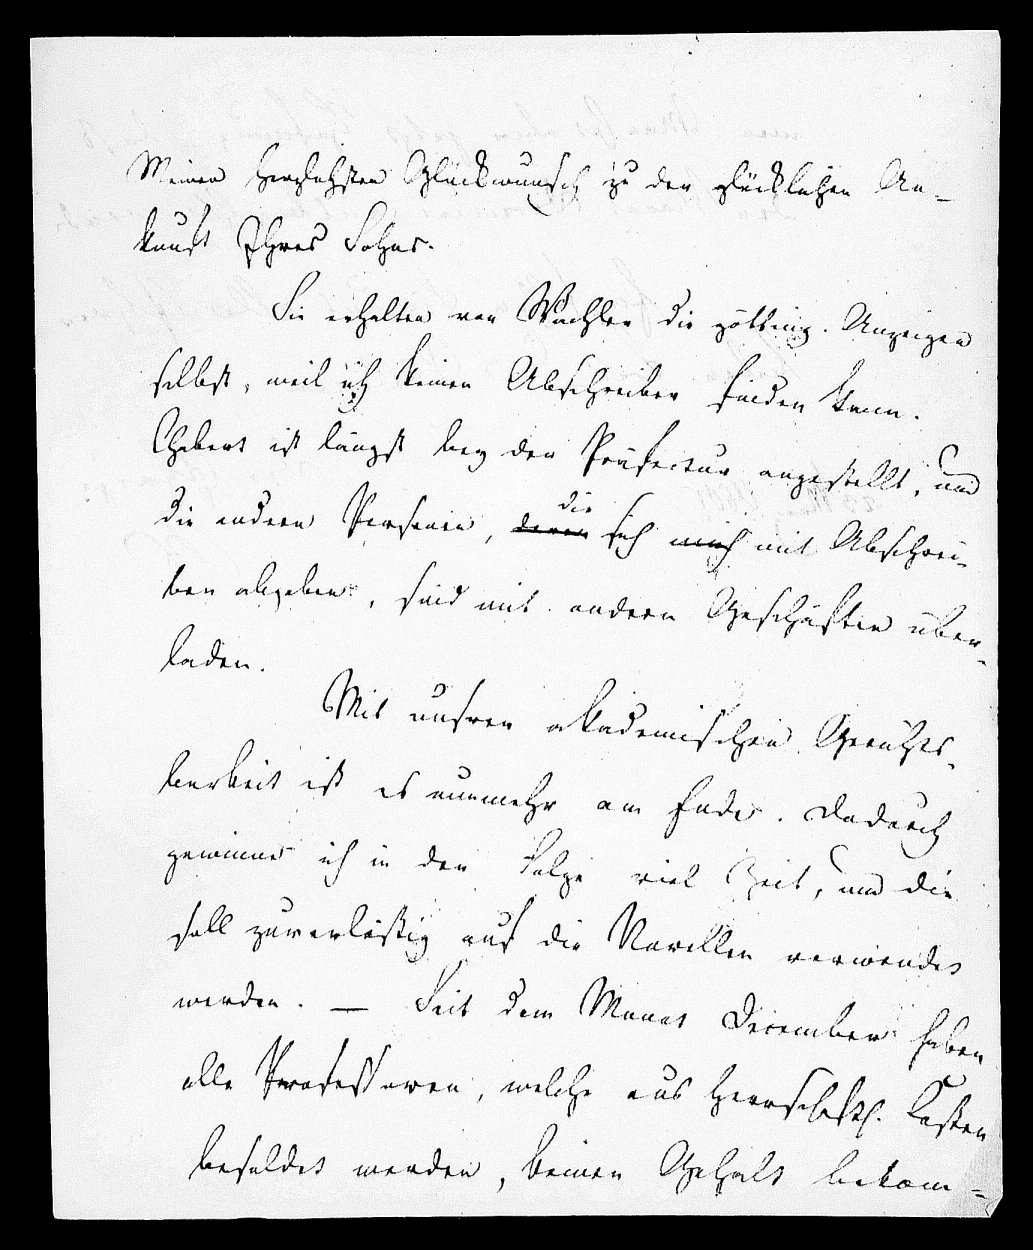 Meinen herzlichsten Glückwunsch zu der glücklichen An-
kunft Ihres Sohns.
Sie erhalten von Wachler die götting. Anzeigen
selbst, weil ich keinen Abschreiber finden kann.
Chabert ist längst bey der Präfectur angestellt, und
die andern Personen, deren die sich mich mit Abschrei-
ben abgeben, sind mit andern Geschäften über-
laden.
Mit unsrer akademischen Gerichts-
barkeit ist es nunmehr am Ende. Dadurch
gewinne ich in der Folge viel Zeit, und die
soll zuverlässig auf die Novellen verwendet
werden. — Seit dem Monat December haben
alle Professoren, welche aus herrschftl. Kassen
besoldet werden, keinen Gehalt bekom-